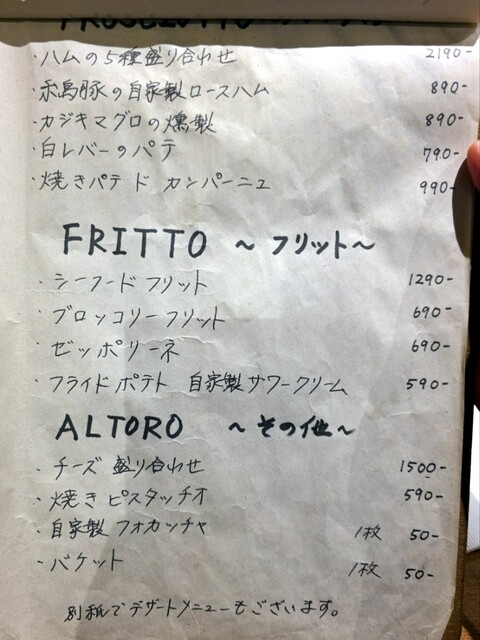 ・ハムの5種盛り合わせ 2190-
・糸島豚の自家製ロースハム 890-
・カジキマグロの燻製 890-
・白レバーのパテ 790-
・焼きパテ ド カンパーニュ 990-
FRITTO ～フリット～
・シーフードフリット 1290-
・ブロッコリーフリット 690-
・ゼッポリーネ 690-
・フライドポテト 自家製サワークリーム 590-
ALTORO ～その他～
・チーズ盛り合わせ 1500-
・焼きピスタッチオ 590-
・自家製フォカッチャ 1枚 50-
・バケット 1枚 50-
別紙でデザートメニューもございます。